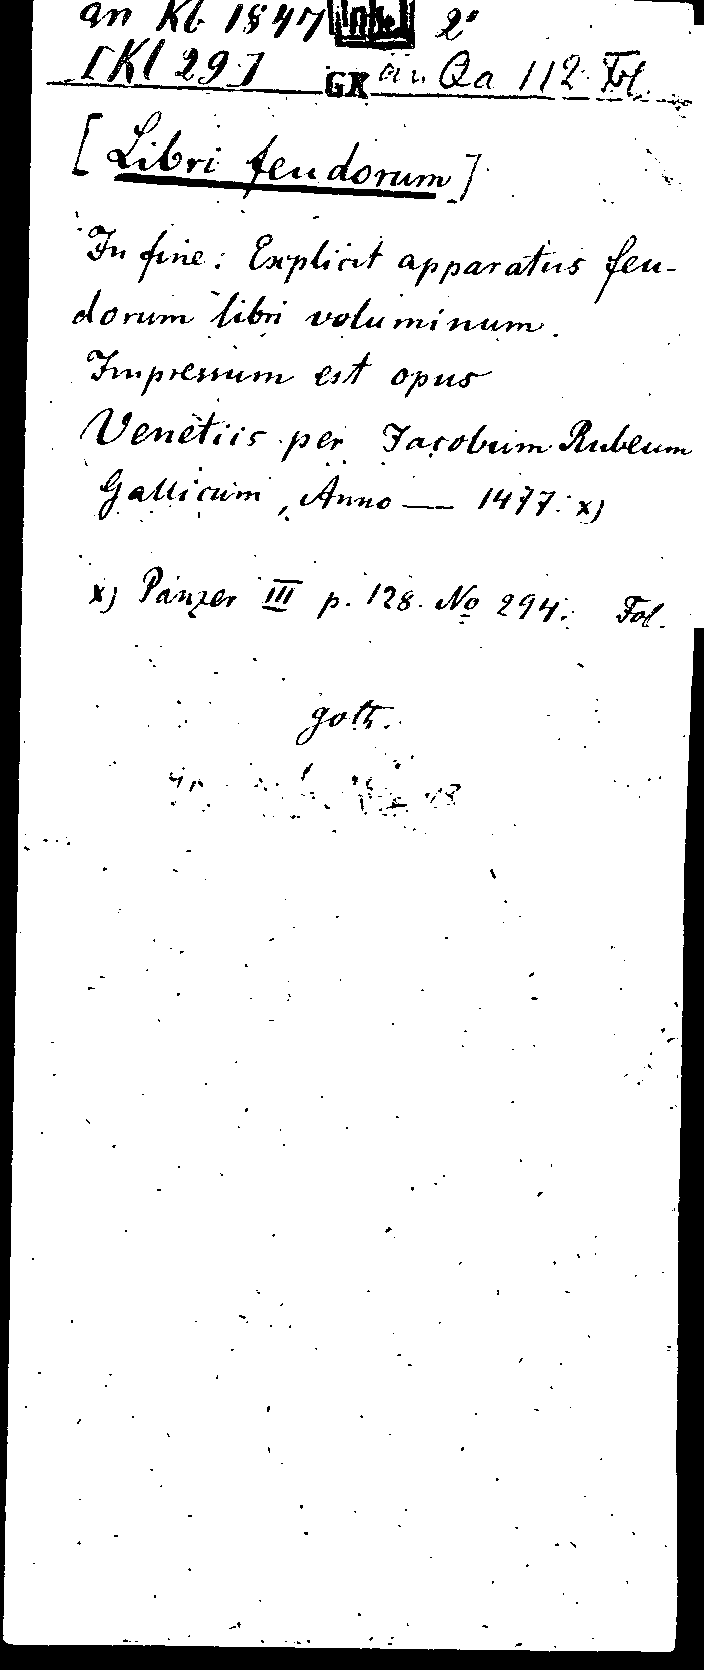 an Kb 1847 Ink. 2°
[Kl 29] GK an Qa 112 Fol.
[Libri feudorum]
In fine: Explicit apparatus feu-
dorum libri voluminum.
Impressum est opus
Venetiis per Jacobum Rubeum
Gallicum, Anno — 1477. x)
x) Panzer III p. 128. No 294. Fol.
goth.